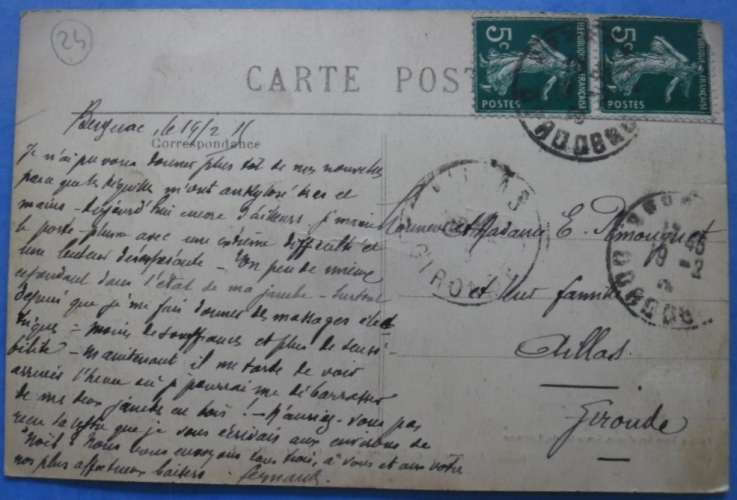 24
CARTE POST
5c
POSTES
REPUBLIQUE FRANÇAISE
5c
POSTES
REPUBLIQUE FRANÇAISE
Correspondance
le 19/2 15
Je n'ai pu vous donner plus tôt de mes nouvelles
parce que les béquilles m'ont ankylosé bras et
mains - Aujourd'hui encore d'ailleurs je manie
le porte-plume avec une extrême difficulté et
une lenteur désespérante - Un peu de mieux
cependant dans l'état de ma jambe - surtout
depuis que je me fais donner des massages élec
triques = moins de souffrances et plus de sensi-
bilité - Maintenant il me tarde de voir
arriver l'heure où je pourrai me débarrasser
de mes deux jambes en bois - N'auriez-vous pas
reçu la lettre que je vous écrivais aux environs de
Noël? Nous vous envoyons tous trois, à vous et aux vôtres
nos plus affectueux baisers
Monsieur et Madame E.
et leur famille
Aillas
Gironde
GIRONDE
BORDEAUX
19 - 2